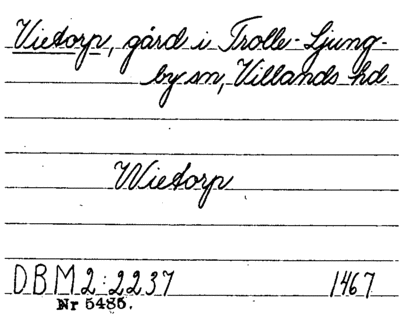 Vietorp, gård i Trolle-Ljung-
by sn, Villands hd.
Wietorp
DBM 2:2237 1467
Nr 5485.